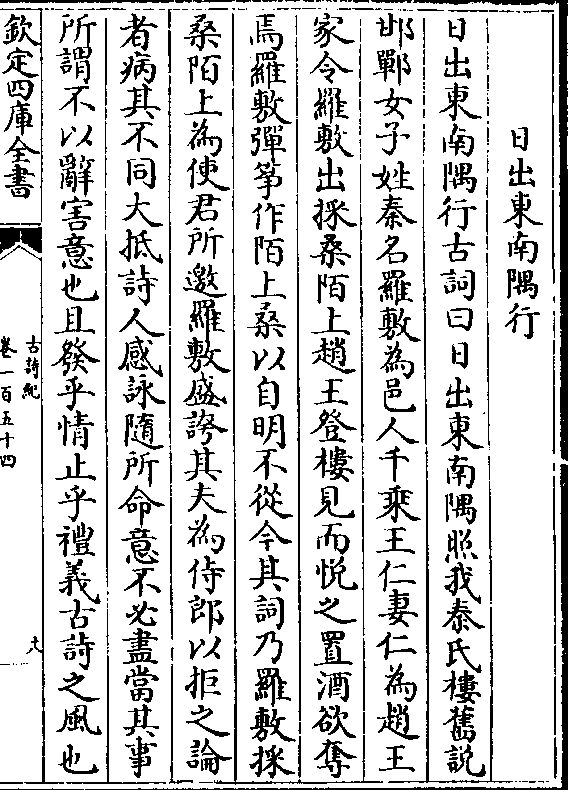 日出東南隅行
日出東南隅行古詞曰日出東南隅照我秦氏樓舊説
邯鄲女子姓秦名羅敷為邑人千乘王仁妻仁為趙王
家令羅敷出採桑陌上趙王登樓見而悦之置酒欲奪
焉羅敷彈筝作陌上桑以自明不從今其詞乃羅敷採
桑陌上為使君所邀羅敷盛誇其夫為侍郎以拒之論
者病其不同大抵詩人感詠隨所命意不必盡當其事
所謂不以辭害意也且發乎情止乎禮義古詩之風也
欽定四庫全書
古詩紀
卷一百五十四